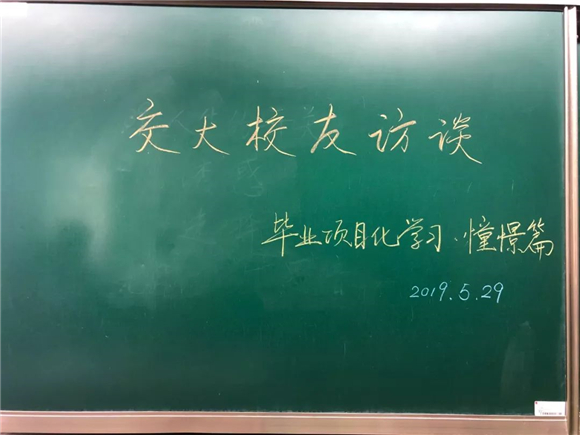 交大校友访谈
毕业项目化学习·憧憬篇
2019.5.29